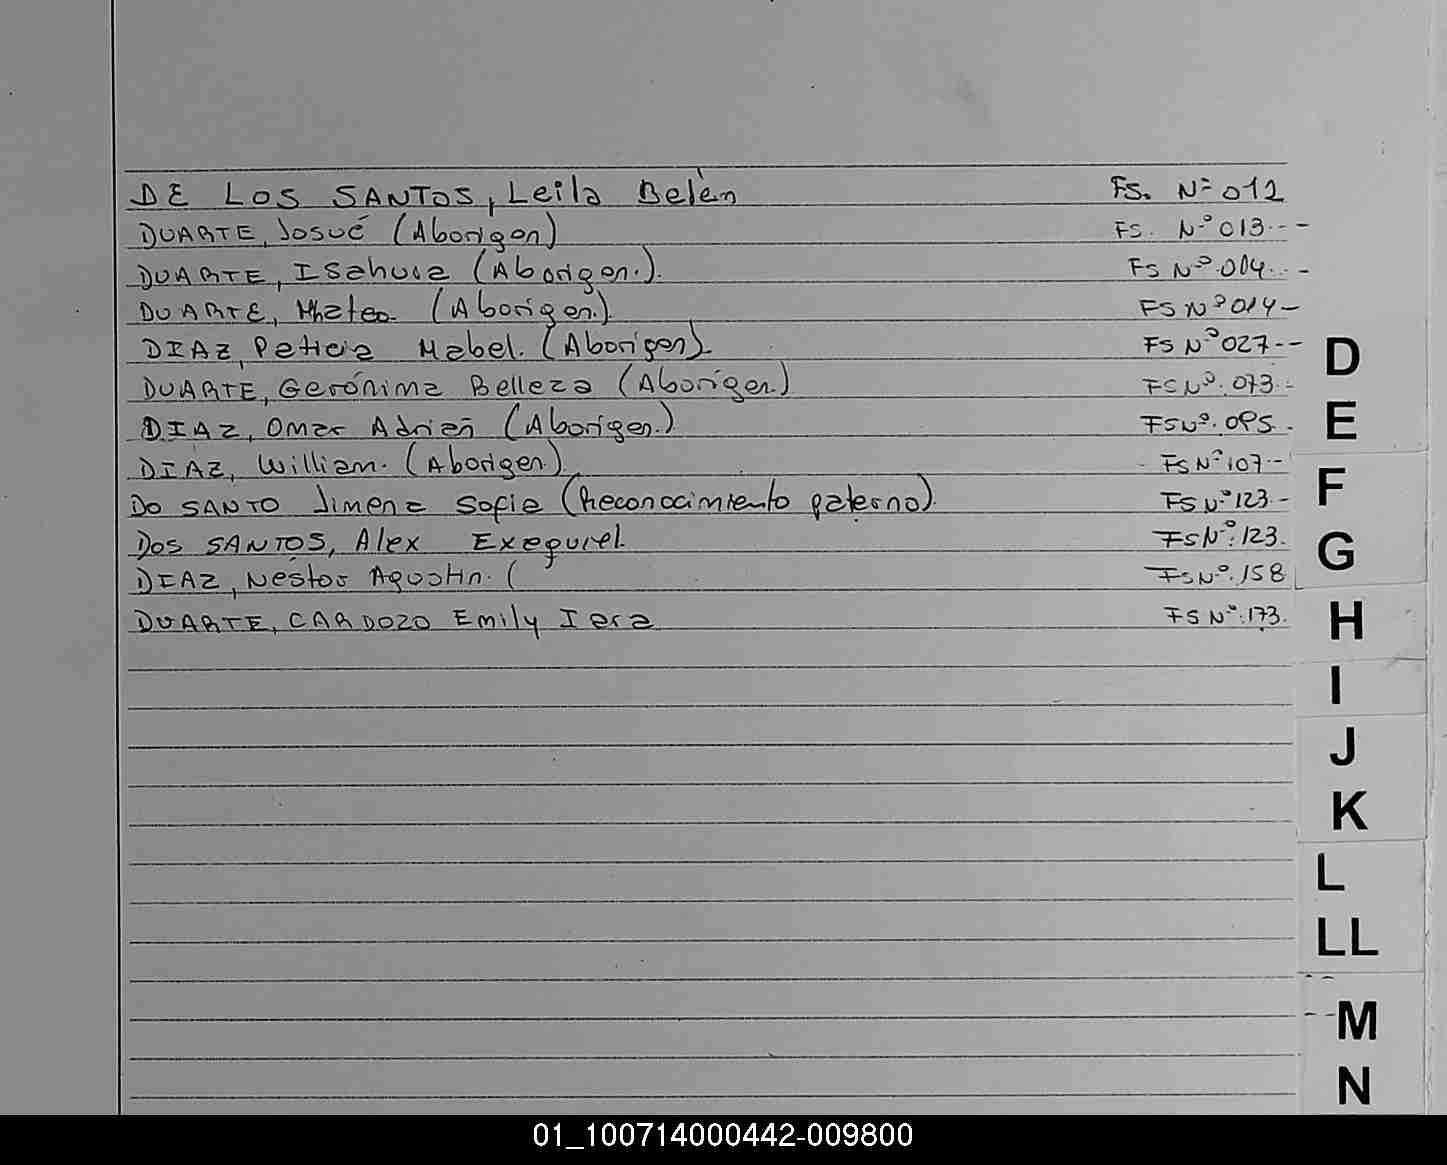 DE LOS SANTOS, Leila Belén FS. Nº 012
DUARTE, Josué (Aborigen) FS. Nº 013---
DUARTE, Isahura (Aborigen.). FS Nº.004..-
DUARTE, Mhateo. (Aborigen.) FS Nº014-
DIAZ, Patricia Mabel. (Aborigen) FS Nº027--
DUARTE, Gerónima Belleza (Aborigen.) FSNº.073.-
DIAZ, Omar Adrian (Aborigen.) FSNº.095.
DIAZ, William. (Aborigen.) FSNº107--
DO SANTO Jimena Sofia (Reconocimiento paterno). FSNº123-
DOS SANTOS, Alex Exequiel. FSNº:123.
DIAZ, Nestor Agustin. ( FSNº.158
DUARTE, CARDOZO Emily Iara FSNº:173.
D
E
F
G
H
I
J
K
L
LL
M
N
01_100714000442-009800